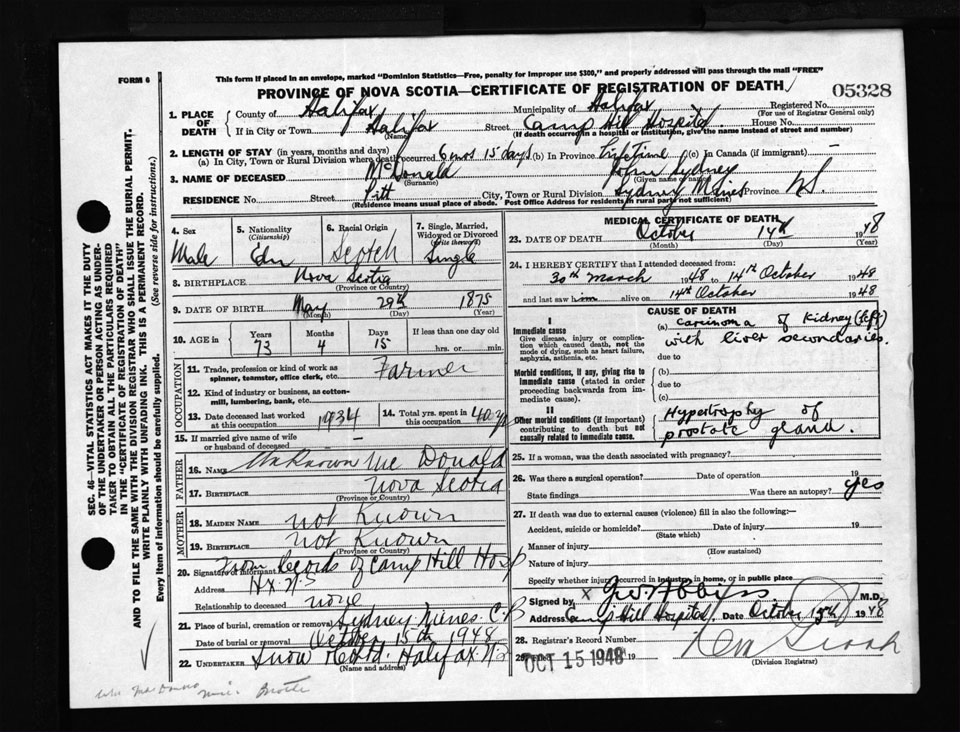 FORM 6
This form if placed in an envelope, marked "Dominion Statistics—Free, penalty for improper use $300," and properly addressed will pass through the mail "FREE"
PROVINCE OF NOVA SCOTIA—CERTIFICATE OF REGISTRATION OF DEATH
05328
1. PLACE OF DEATH
County of Halifax Municipality of Halifax Registered No.
(For use of Registrar General only)
If in City or Town Halifax Street Camp Hill Hospital House No.
(Name) (If death occurred in a hospital or institution, give the name instead of street and number)
2. LENGTH OF STAY (in years, months and days)
(a) In City, Town or Rural Division where death occurred 6 mos 15 days (b) In Province Life Time (c) In Canada (if immigrant) —
3. NAME OF DECEASED McDonald John Sydney
(Surname) (Given name or names)
RESIDENCE No. Street Pitt City, Town or Rural Division Sydney Mines Province N.S.
(Residence means usual place of abode. Post Office Address for residents in rural parts not sufficient)
4. Sex
Male
5. Nationality
(Citizenship)
Cdn
6. Racial Origin
Scotch
7. Single, Married, Widowed or Divorced
(Write the word)
Single
8. BIRTHPLACE Nova Scotia
(Province or Country)
9. DATE OF BIRTH May 29th 1875
(Month) (Day) (Year)
10. AGE in
Years Months Days If less than one day old
73 4 15 hrs. or min.
OCCUPATION
11. Trade, profession or kind of work as spinner, teamster, office clerk, etc. Farmer
12. Kind of industry or business, as cotton-mill, lumbering, bank, etc.
13. Date deceased last worked at this occupation 1934
14. Total yrs. spent in this occupation 40 yrs
15. If married give name of wife or husband of deceased —
FATHER
16. NAME Unknown McDonald
17. BIRTHPLACE Nova Scotia
(Province or Country)
MOTHER
18. MAIDEN NAME not Known
19. BIRTHPLACE not Known
(Province or Country)
20. Signature of informant From Records of Camp Hill Hosp
Address Hx. N.S
Relationship to deceased none
21. Place of burial, cremation or removal Sydney Mines C.B
Date of burial or removal October 15th 1948
22. UNDERTAKER Snow & Co Ltd. Halifax N.S
(Name and address)
MEDICAL CERTIFICATE OF DEATH
23. DATE OF DEATH October 14th 1948
(Month) (Day) (Year)
24. I HEREBY CERTIFY that I attended deceased from:
30th March 1948 to 14th October 1948
and last saw him alive on 14th October 1948
CAUSE OF DEATH
I
Immediate cause
Give disease, injury or complication which caused death, not the mode of dying, such as heart failure, asphyxia, asthenia, etc.
(a) Carcinoma of kidney (left)
with liver secondaries.
due to
Morbid conditions, if any, giving rise to immediate cause (stated in order proceeding backwards from immediate cause).
(b)
due to
(c)
II
Other morbid conditions (if important) contributing to death but not causally related to immediate cause.
Hypertrophy of
prostate gland.
25. If a woman, was the death associated with pregnancy?
26. Was there a surgical operation? Date of operation 19
State findings Was there an autopsy? yes
27. If death was due to external causes (violence) fill in also the following:—
Accident, suicide or homicide? Date of injury 19
(State which)
Manner of injury
(How sustained)
Nature of injury
Specify whether injury occurred in industry, in home, or in public place
Signed by M.D.
Address Camp Hill Hospital, Date October 15th 1948
28. Registrar's Record Number
29. OCT 15 1948 19
(Division Registrar)
SEC. 46—VITAL STATISTICS ACT MAKES IT THE DUTY
OF THE UNDERTAKER OR PERSON ACTING AS UNDER-
TAKER TO OBTAIN ALL THE PARTICULARS REQUIRED
IN THE "CERTIFICATE OF REGISTRATION OF DEATH"
AND TO FILE THE SAME WITH THE DIVISION REGISTRAR WHO SHALL ISSUE THE BURIAL PERMIT.
WRITE PLAINLY WITH UNFADING INK. THIS IS A PERMANENT RECORD.
Every item of information should be carefully supplied. (See reverse side for instructions.)